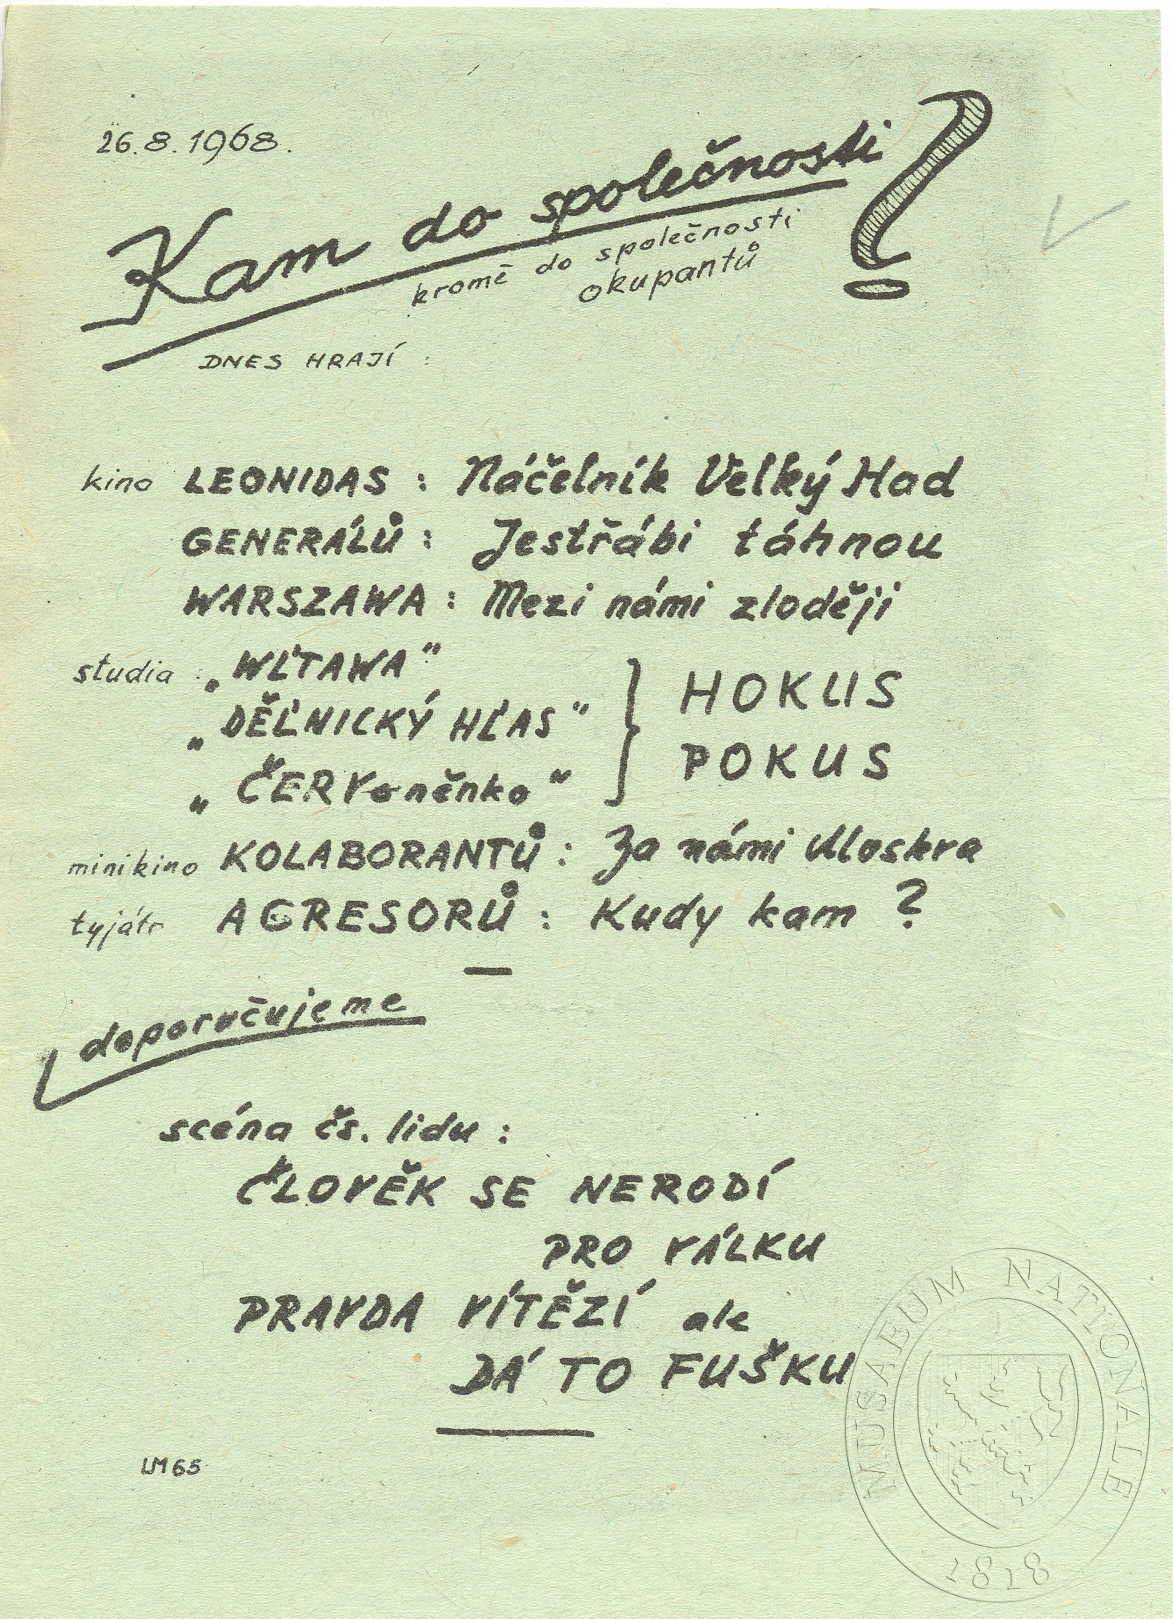 26.8.1968.
Kam do společnosti?
kromě do společnosti
okupantů
DNES HRAJÍ:
kino LEONIDAS: Náčelník Velký Had
GENERÁLŮ: Jestřábi táhnou
WARSZAWA: Mezi námi zloději
studia: „WĽTAWA"
„DĚĽNICKÝ HĽAS"
„ČERVoněnko"
HOKUS
POKUS
minikino KOLABORANTŮ: Za námi Moskva
tyjátr AGRESORŮ: Kudy kam?
doporučujeme
scéna čs. lidu:
ČLOVĚK SE NERODÍ
PRO VÁLKU
PRAVDA VÍTĚZÍ ale
DÁ TO FUŠKU
LM65
MUSAEUM NATIONALE
1818